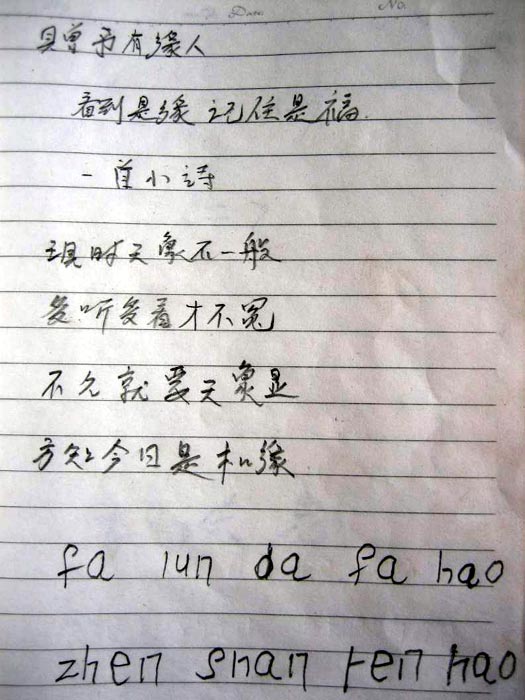 Date
No.
曾予有缘人
看到是缘 记住是福.
一首小诗
现时天象不一般
多听多看才不冤
不久就要天象显
方知今日是机缘
fa lun da fa hao
zhen shan ren hao